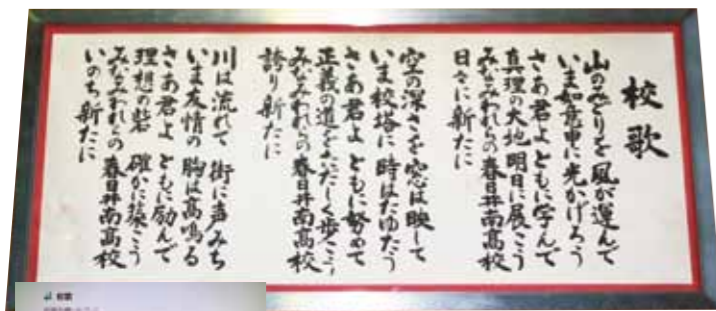 校歌
山のみどりを風が運んで
いま如意申に光かげろう
さあ君よ ともに学んで
真理の大地 明日に展こう
みなみわれらの春日井南高校
日々に新たに
空の深さを窓は映して
いま校塔に 時はたゆたう
さあ君よ ともに努めて
正義の道をただしく歩こう
みなみわれらの 春日井南高校
誇り新たに
川は流れて 街に声みち
いま友情の 胸は高鳴る
さあ君よ ともに励んで
理想の砦 確かに築こう
みなみわれらの 春日井南高校
いのち新たに
校歌